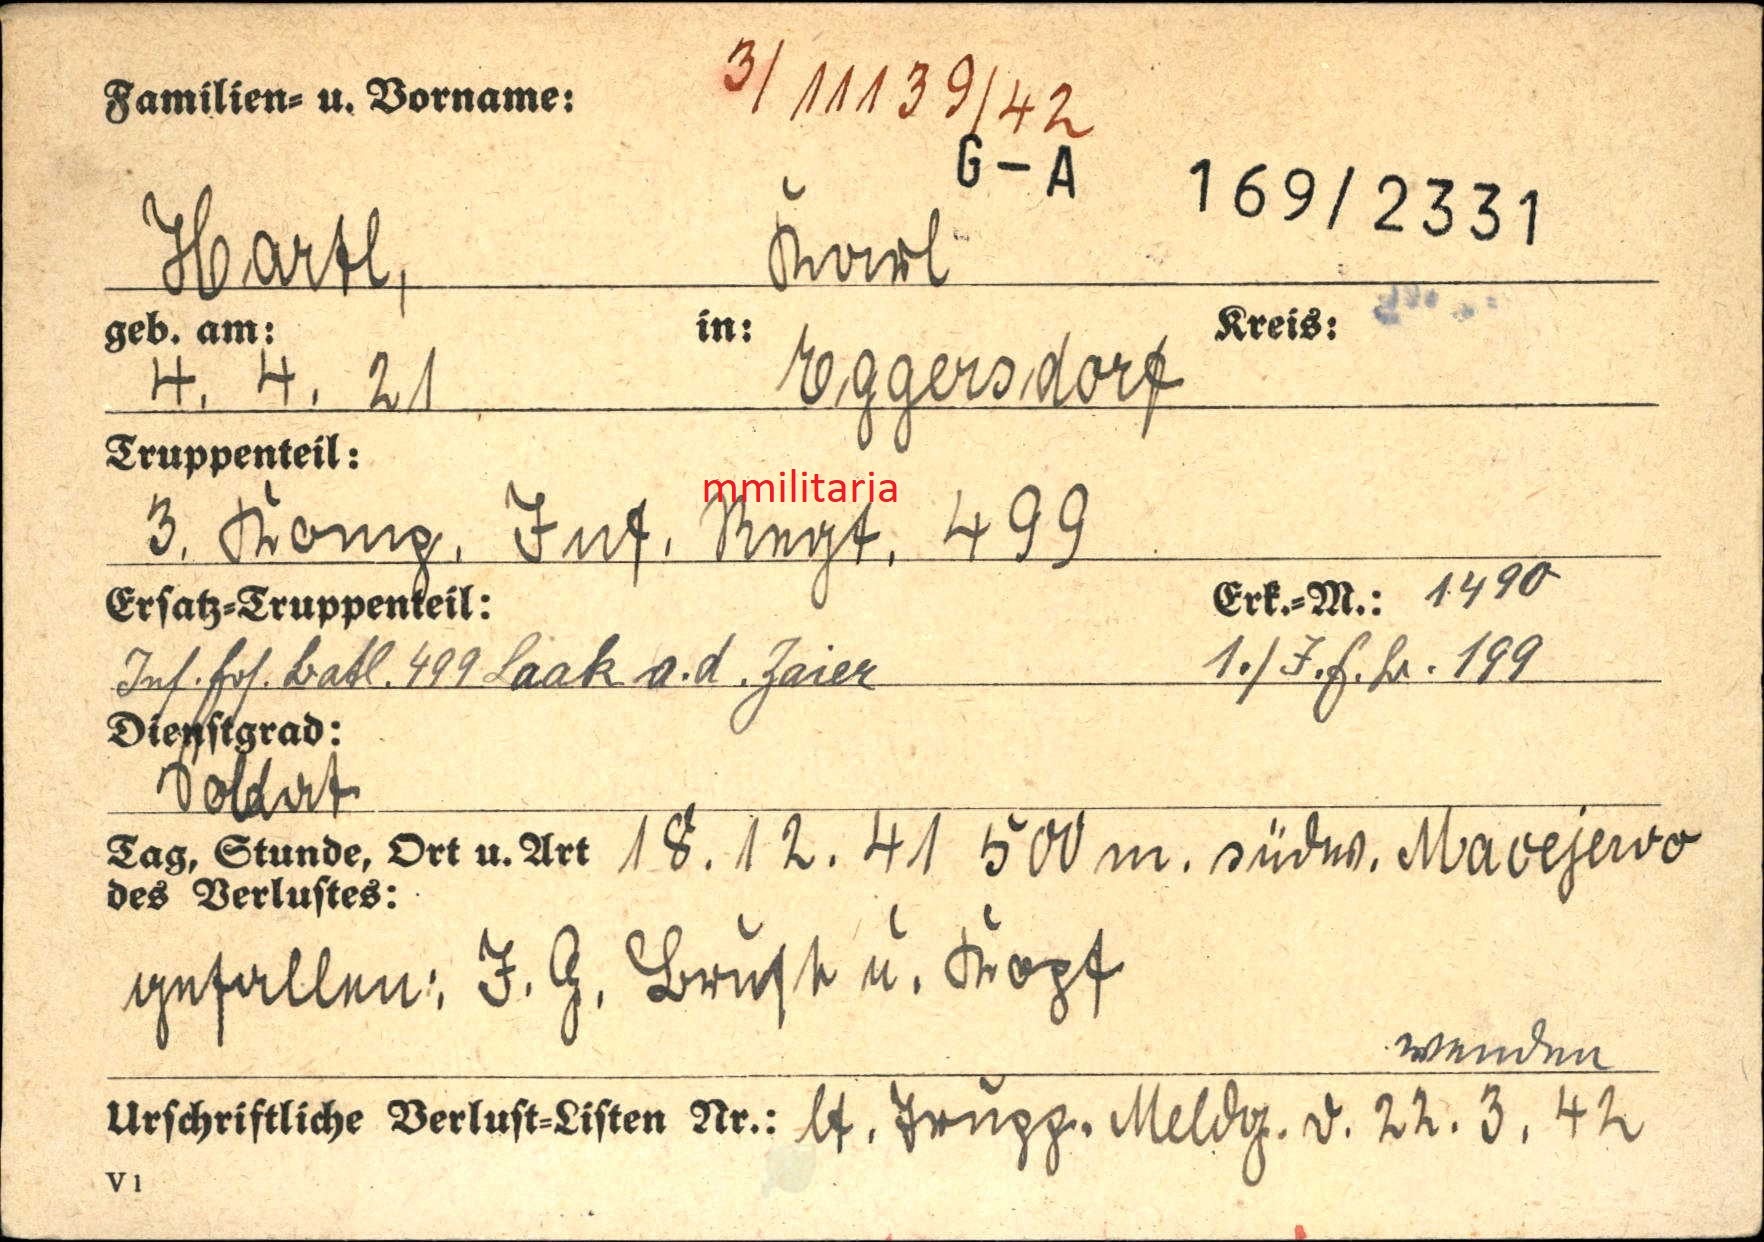 Familien- u. Vorname:
3/11139/42
G-A
169/2331
Hartl, Karl
geb. am: in: Kreis:
4. 4. 21 Eggersdorf
Truppenteil:
mmilitaria
3. Komp. Inf. Regt. 499
Ersatz-Truppenteil: Erk.-M.: 1490
Inf. Ers. Batl. 499 Laak a.d. Zaier 1./I.E.B. 199
Dienstgrad:
Soldat
Tag, Stunde, Ort u. Art 18.12.41 500 m. südw. Macejewo
des Verlustes:
gefallen: I. G. Brust u. Kopf
wenden
Urschriftliche Verlust-Listen Nr.: lt. Trupp. Meldg. v. 22.3.42
V1